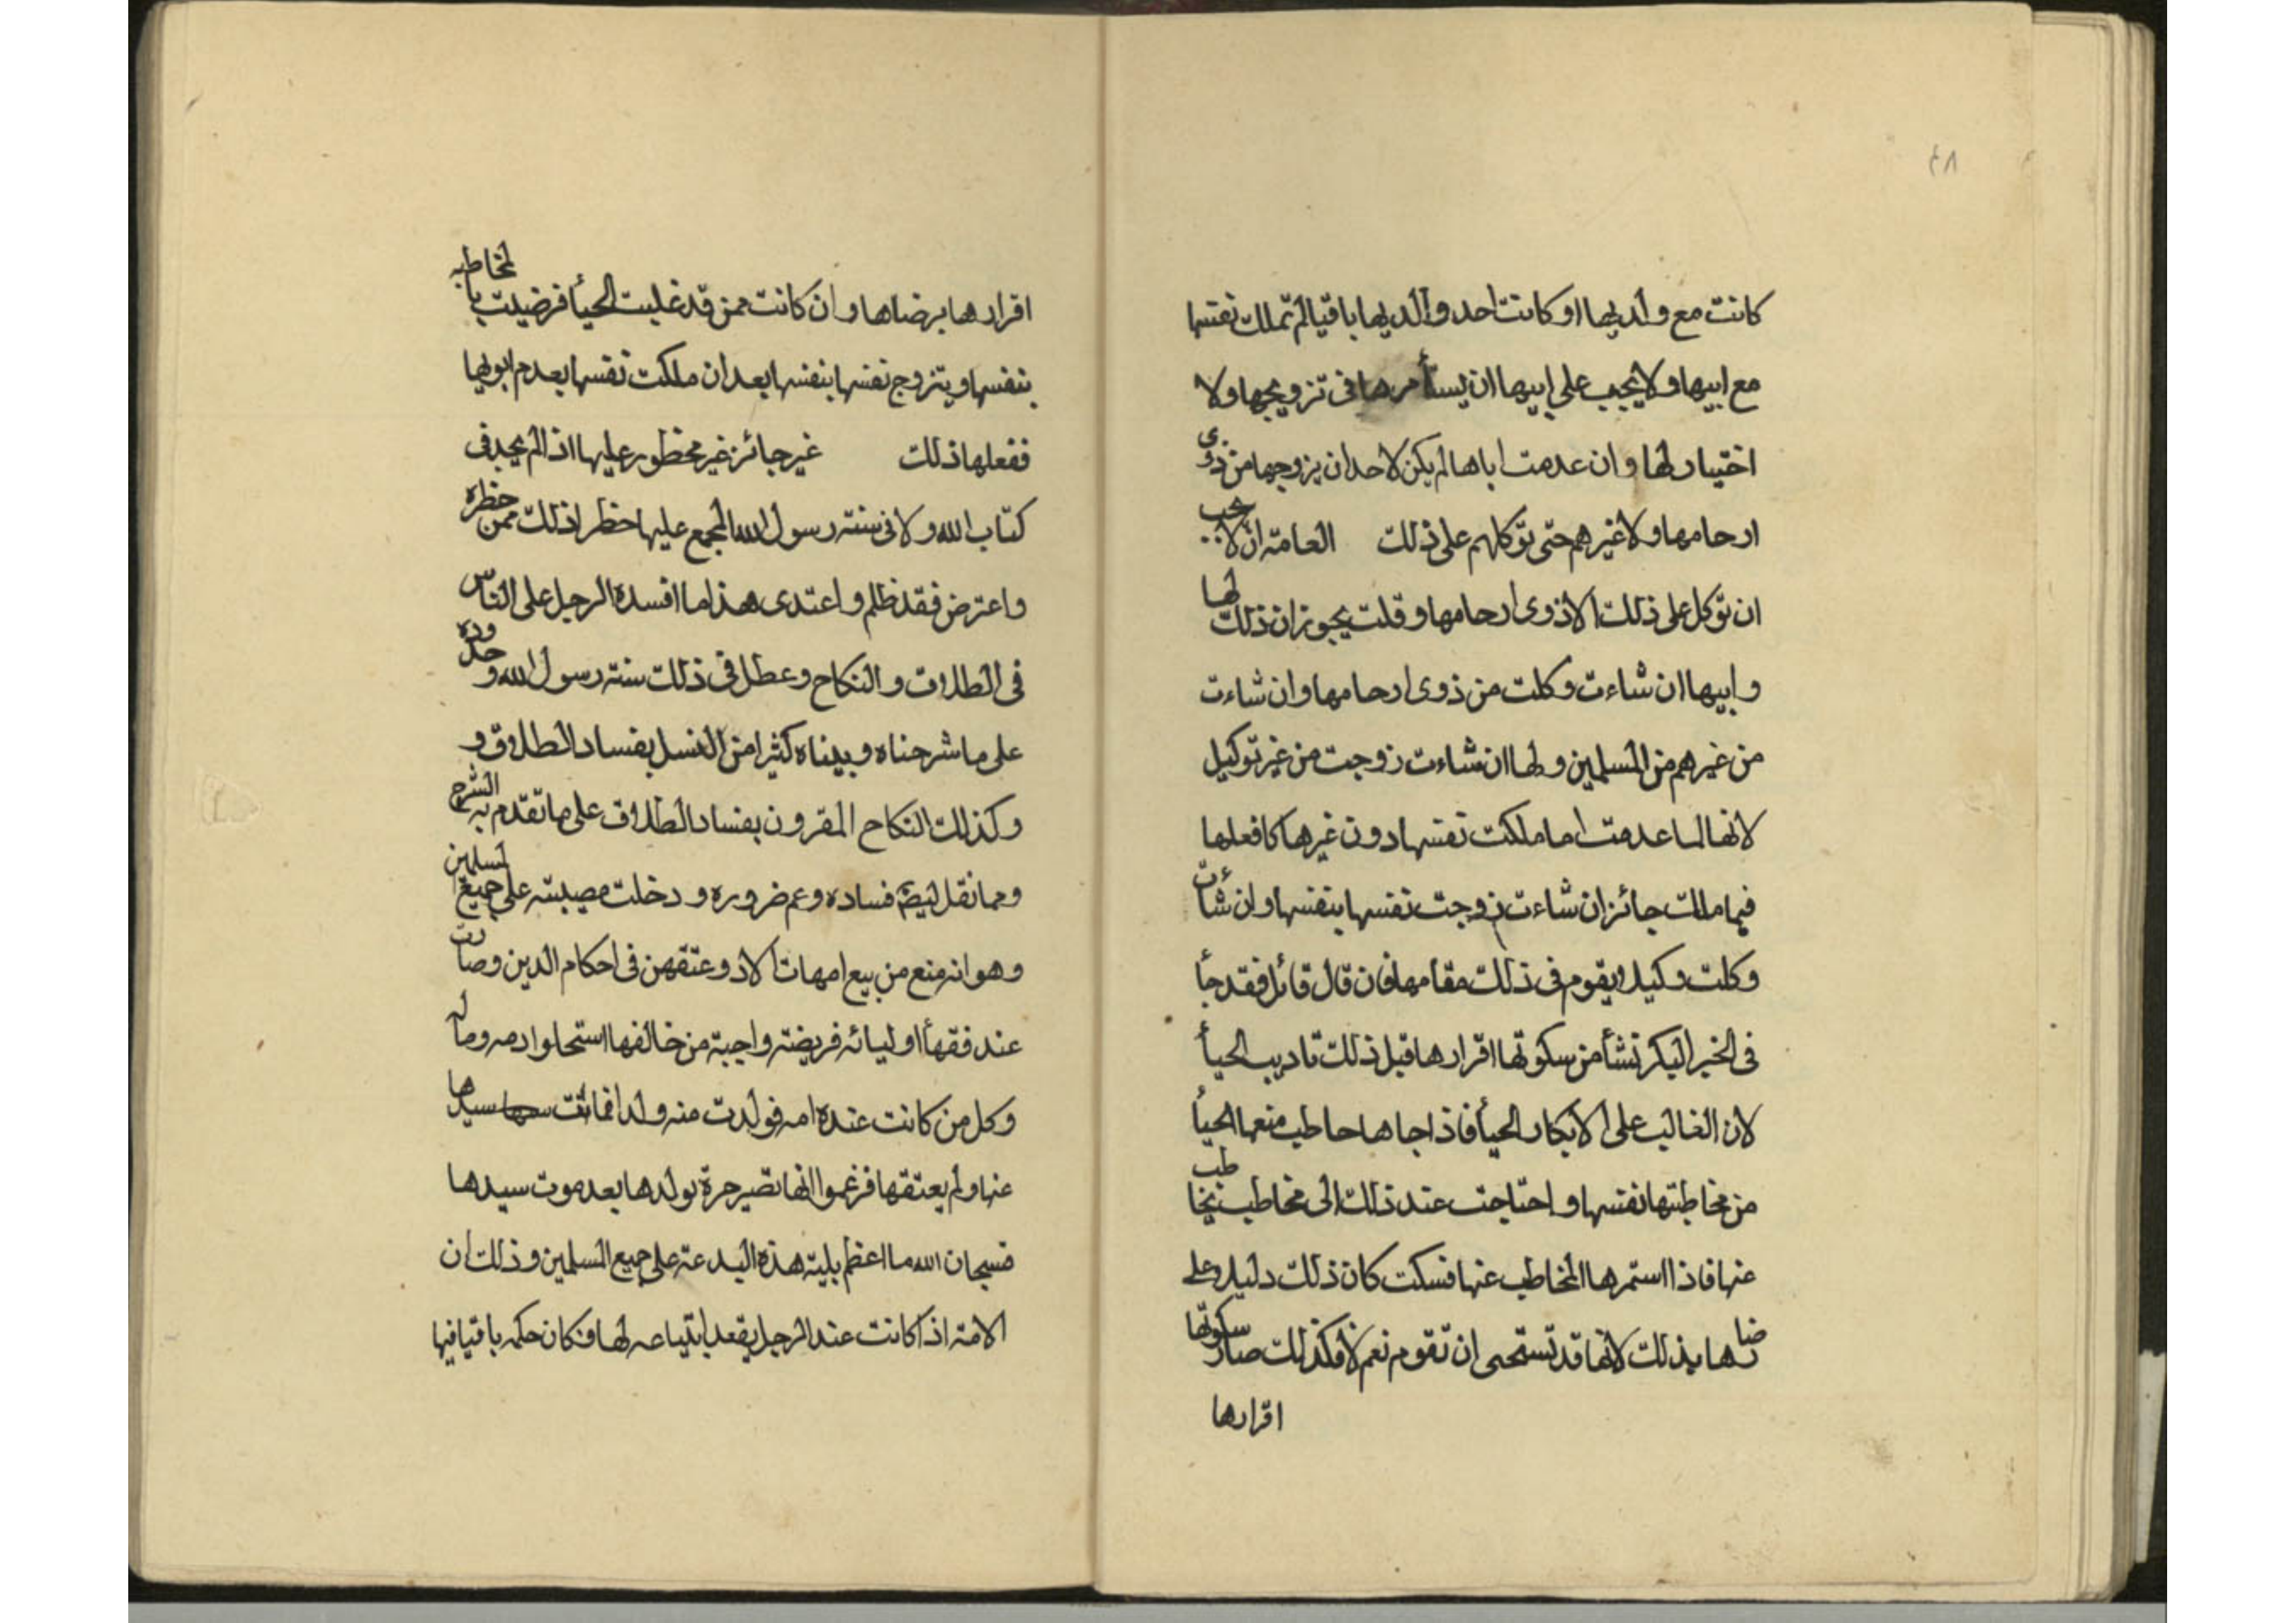 ٨٤
كانت مع والديها او كانت احد والديها باقيا لم تملك نفسها
مع ابيها ولا يجب على ابيها ان يستأمرها فى تزويجها ولا
اختيار لها وان عدمت اباها لم يكن لاحد ان يزوجها من ذوى
ارحامها ولا غيرهم حتى توكلهم على ذلك العامة ان لا يجب
ان توكل على ذلك الا ذوى ارحامها وقلت يجوز ان ذلك لها
وابيها ان شاءت وكلت من ذوى ارحامها وان شاءت
من غيرهم من المسلمين ولها ان شاءت زوجت من غير توكيل
لانها لما عدمت اما ملكت نفسها دون غيرها كافعلها
فيما ملك جائز ان شاءت زوجت نفسها بنفسها وان شأت
وكلت وكيلا يقوم فى ذلك مقامها فان قال قائل فقد جأ
فى الخبر البكر تشأ من سكوتها اقرارها قبل ذلك تاديب الحيأ
لان الغالب على الابكار الحيأ فاذ اجاها حاطب منعها الحيأ
من مخاطبتها نفسها و احتاجت عند ذلك الى مخاطب يخاطب
عنها فاذا استمرها المخاطب عنها فسكت كان ذلك دليلا على
رضاها بذلك لانها قد تستحى ان تقوم نعم لا فكذلك صار سكوتها
اقرارها
اقرارها برضاها و ان كانت ممن قد غلبت الحيأ فرضيت بالمخاطبه
بنفسها و يتزوج نفسها بنفسها بعد ان ملكت نفسها بعدم ابويها
ففعلها ذلك غير جائز غير محظور عليها اذا لم يجد فى
كتاب الله ولا فى سنته رسول الله المجمع عليها حظر اذلك ممن حظره
واعترض فقد ظلم و اعتدى هذا ما افسده الرجل على الناس
فى الطلاق و النكاح وعطل فى ذلك سنته رسول الله و حدوده
على ما شرحناه و بيناه كثيرا من النسل بفساد الطلاق و
وكذلك النكاح المقرون بفساد الطلاق على ما تقدم به الشرح
ومما نقل فساده وعم ضروره و دخلت مصيبته على جميع المسلمين
وهو انه منع من بيع امهات الاد وعتقهن فى احكام الدين وصارت
عند فقهأ اوليائه فريضته واجبة من خالفها استحلوا دمه وماله
وكل من كانت عنده امه فولدت منه ولدا فماتت سيدها
عنها ولم يعتقها فزعموا انها تصير حرة بولدها بعد موت سيدها
فسبحان الله ما اعظم بليته هذه البدعة على جميع المسلمين وذلك ان
الامته اذا كانت عند الرجل يقعد ابتياعه لها فكان حكمه باقيا فيها